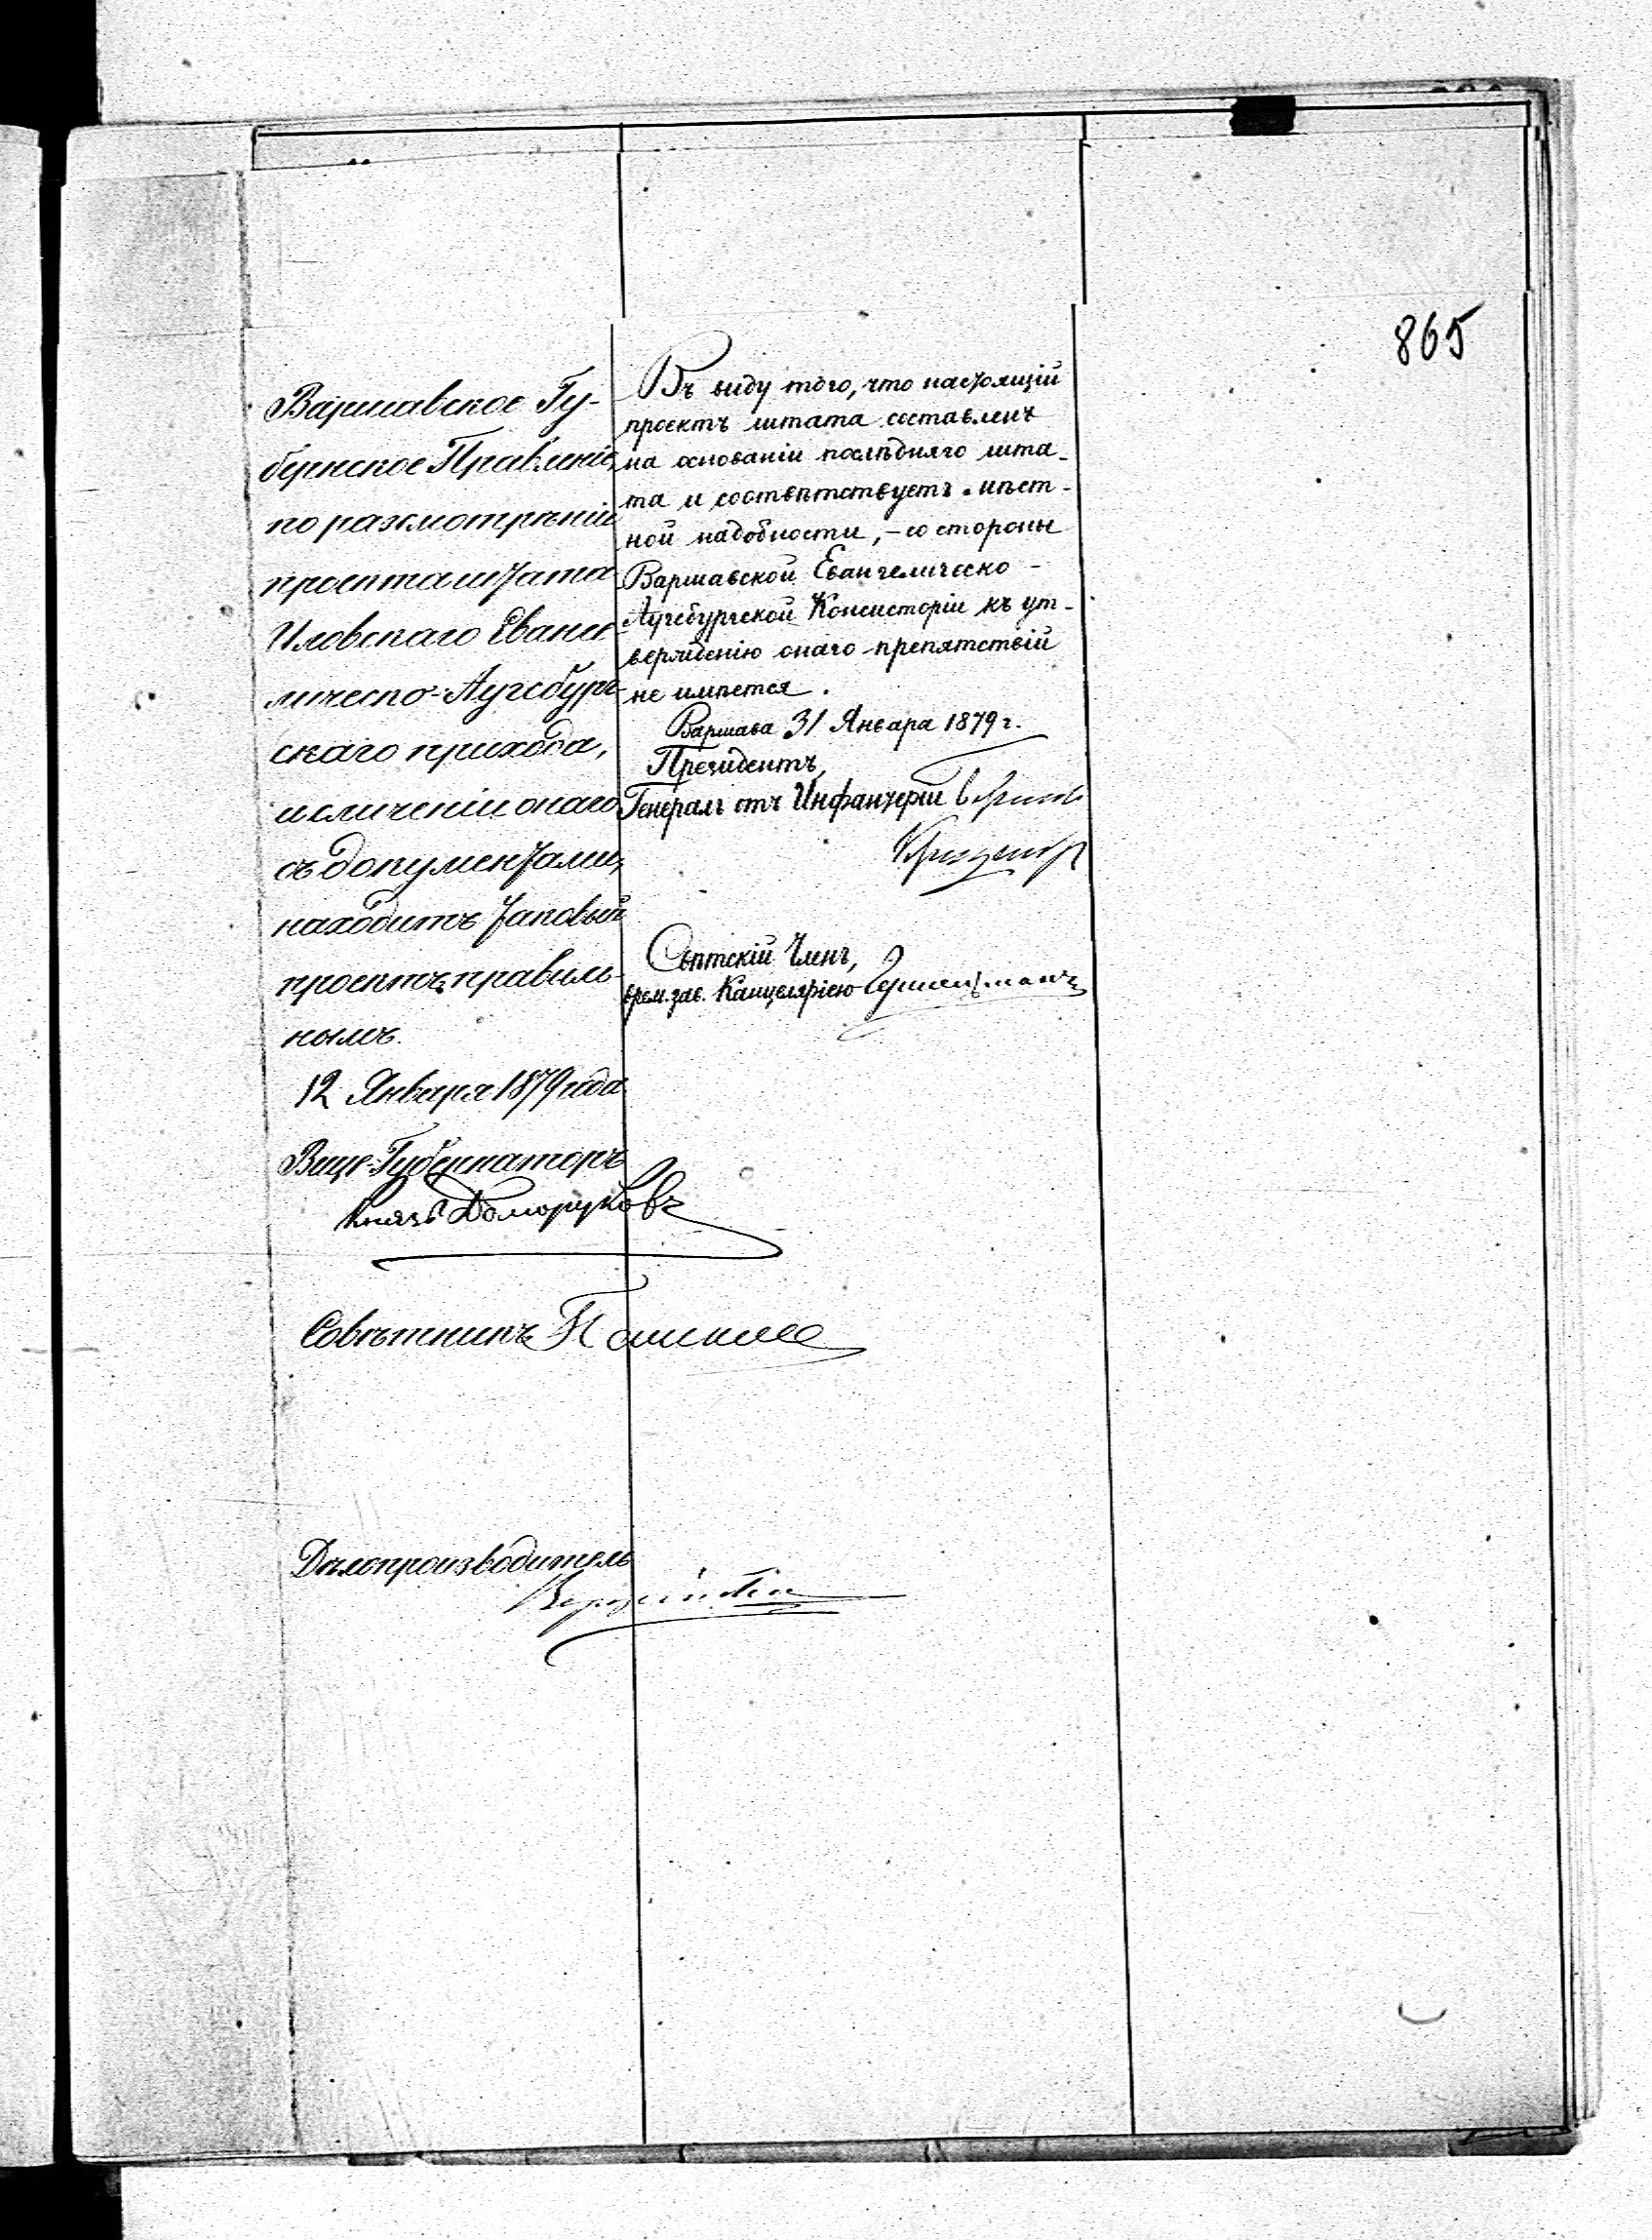 865
Варшавское Гу-
бернское Правленіе,
по разсмотрѣніи
проекта штата
Иловскаго Еванге-
лическо-Аугсбург-
скаго прихода,
и сличеніи онаго
съ документами,
находитъ таковый
проектъ правиль-
нымъ.
12 Января 1879 года
Вице-Губернаторъ
Князь Долгоруковъ
Совѣтникъ
Дѣлопроизводитель
Въ виду того, что настоящій
проектъ штата составленъ
на основаніи послѣдняго шта-
та и соотвѣтствуетъ мѣст-
ной надобности, - со стороны
Варшавской Евангелическо-
Аугсбургской Консисторіи къ ут-
вержденію онаго препятствій
не имѣется.
Варшава 31 Января 1879 г.
Президентъ,
Генералъ отъ Инфантеріи
Свѣтскій Членъ,
врем. зав. Канцеляріею